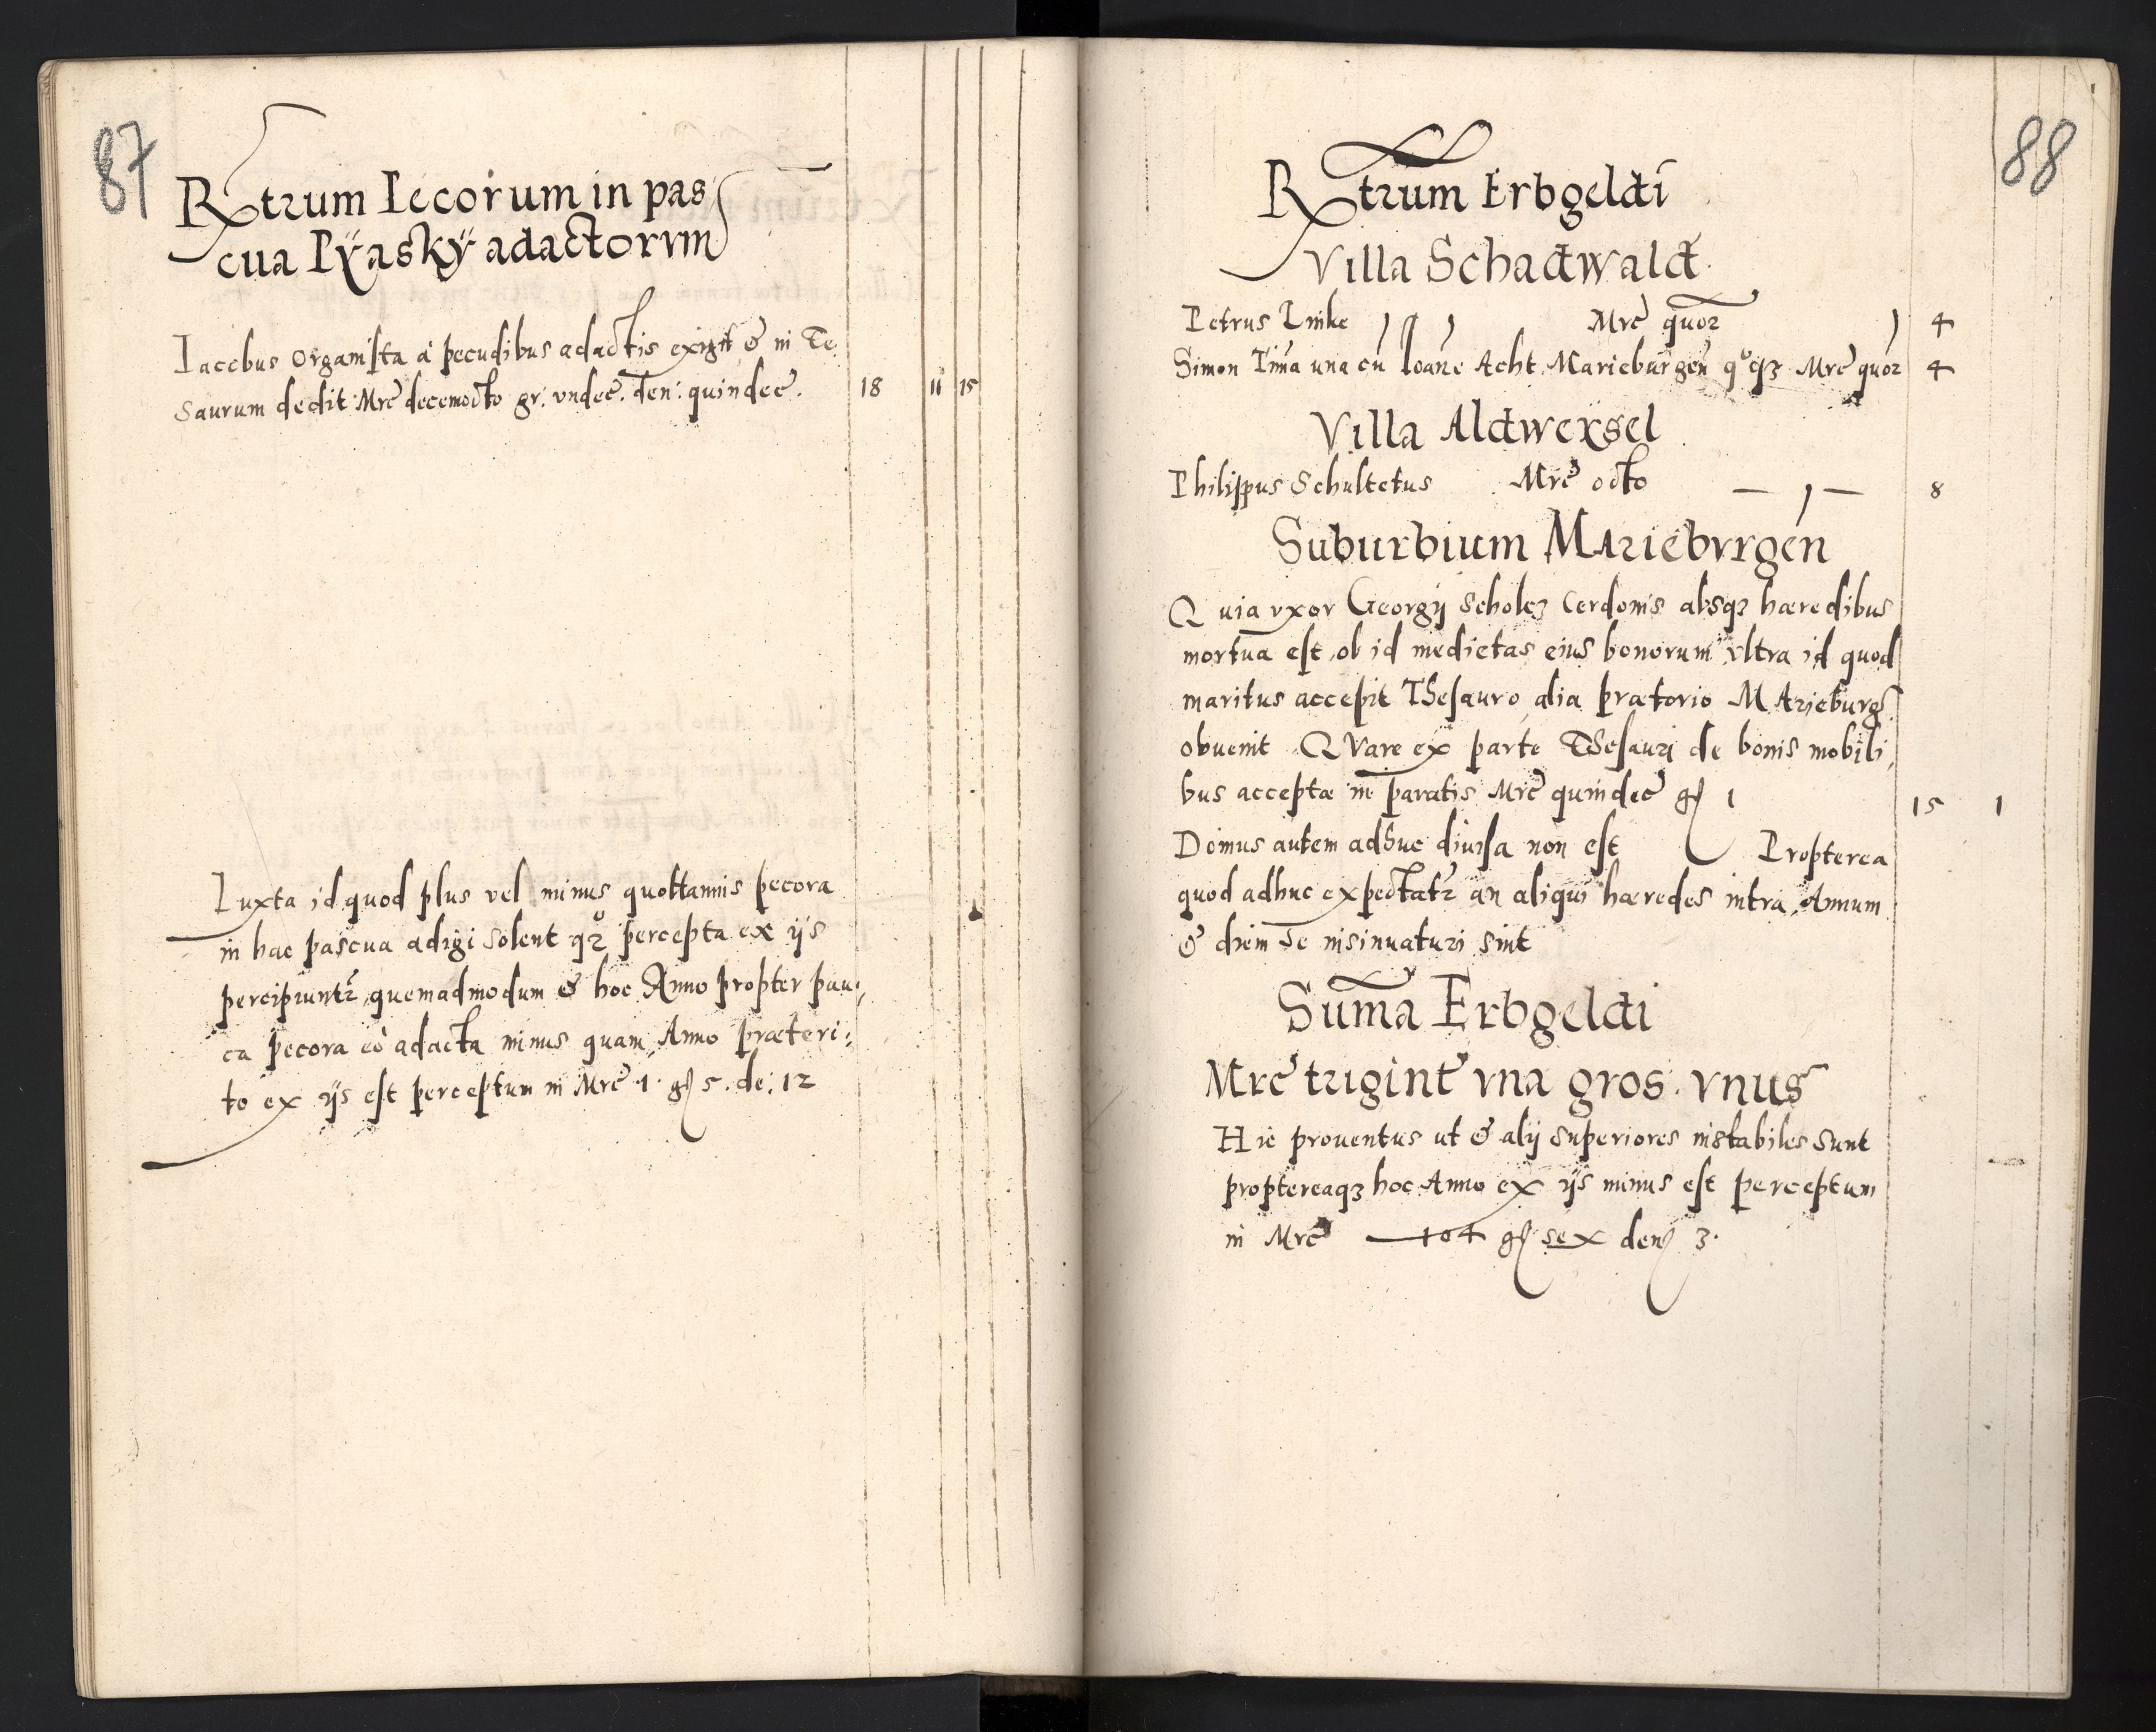 87
Rxtrum Pecorum in pas
cua Pÿaskÿ adactorvm
Iacobus Organista à pecudibus adactis exigit & in Te,
saurum dedit Mrc decemocto gr: vndec. den: quindec. 18 11 15
Iuxta id quod plus vel minus quottannis pecora
in hac pascua adigi solent percepta ex ijs
percipiuntr, quemadmodum & hoc Anno propter pau,
ca pecora eò adacta minus quam Anno præteri:
to ex ijs est perceptum in Mrc 1. gs 5. de: 12
88
Rxtrum Erbgeldi
Villa Schadwald.
Petrus Linke Mrc quor 4
Simon Tima una cu Ioane Acht Marieburgen Mrc quor 4
Villa Aldwexsel
Philippus Schultetus Mrc octo 8
Suburbium Marieburgen
Quia vxor Georgij Scholcz Cerdonis absqz hæredibus
mortua est, ob id medietas eius bonorum vltra id quod
maritus accepit Thesauro, alia prætorio Marieburg.
obuenit Quare ex parte Thesauri de bonis mobili,
bus acceptæ in paratis Mrc quindec gs 1 15 1
Domus autem adhuc diuisa non est Propterea
quod adhuc expectatr an aliqui hæredes intra Annum
& diem se insinuaturi sint
Suma Erbgeldi
Mrc trigint vna gros. vnus
Hic proventus ut & alij superiores instabiles sunt
proptereaqz hoc Anno ex ijs minus est perceptum
in Mrc 104 gs sex den 3.